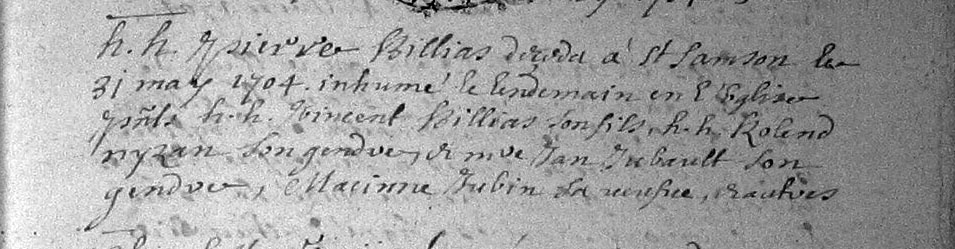 h. h. pierre Billias deceda a St Samson le
31 may 1704. inhumé le lendemain en l'Eglise
pnts h. h. Vincent Billias son fils, h. h. Rolend
nyzan son gendre, & mre Jan Jubault son
gendre, Macinne Jubin sa veufve, & autres